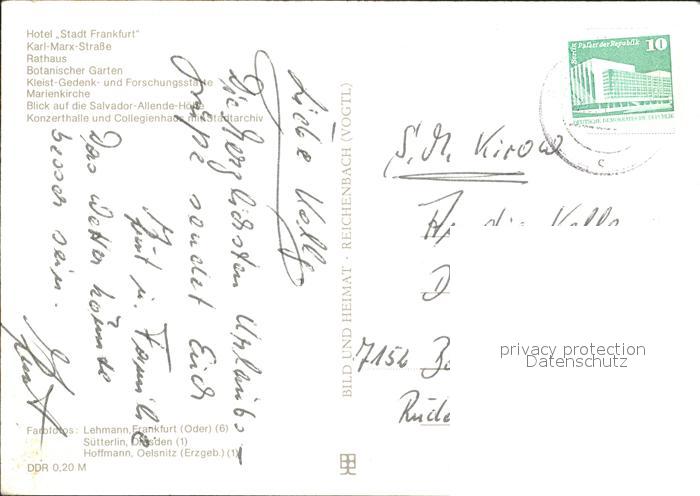 Hotel „Stadt Frankfurt"
Karl-Marx-Straße
Rathaus
Botanischer Garten
Kleist-Gedenk- und Forschungsstätte
Marienkirche
Blick auf die Salvador-Allende-Höhe
Konzerthalle und Collegienhaus mit Stadtarchiv
Liebe
Die herzlichsten Urlaubs-
grüße sendet Euch
u. Familie
Das Wetter könnte
besser sein.
Farbfotos: Lehmann, Frankfurt (Oder) (6)
Sütterlin, Dresden (1)
Hoffmann, Oelsnitz (Erzgeb.) (1)
DDR 0,20 M
BILD UND HEIMAT · REICHENBACH (VOGTL)
Berlin Palast der Republik 10
DEUTSCHE DEMOKRATISCHE REPUBLIK
c
Kirow
An die
D
7152 B
privacy protection
Datenschutz